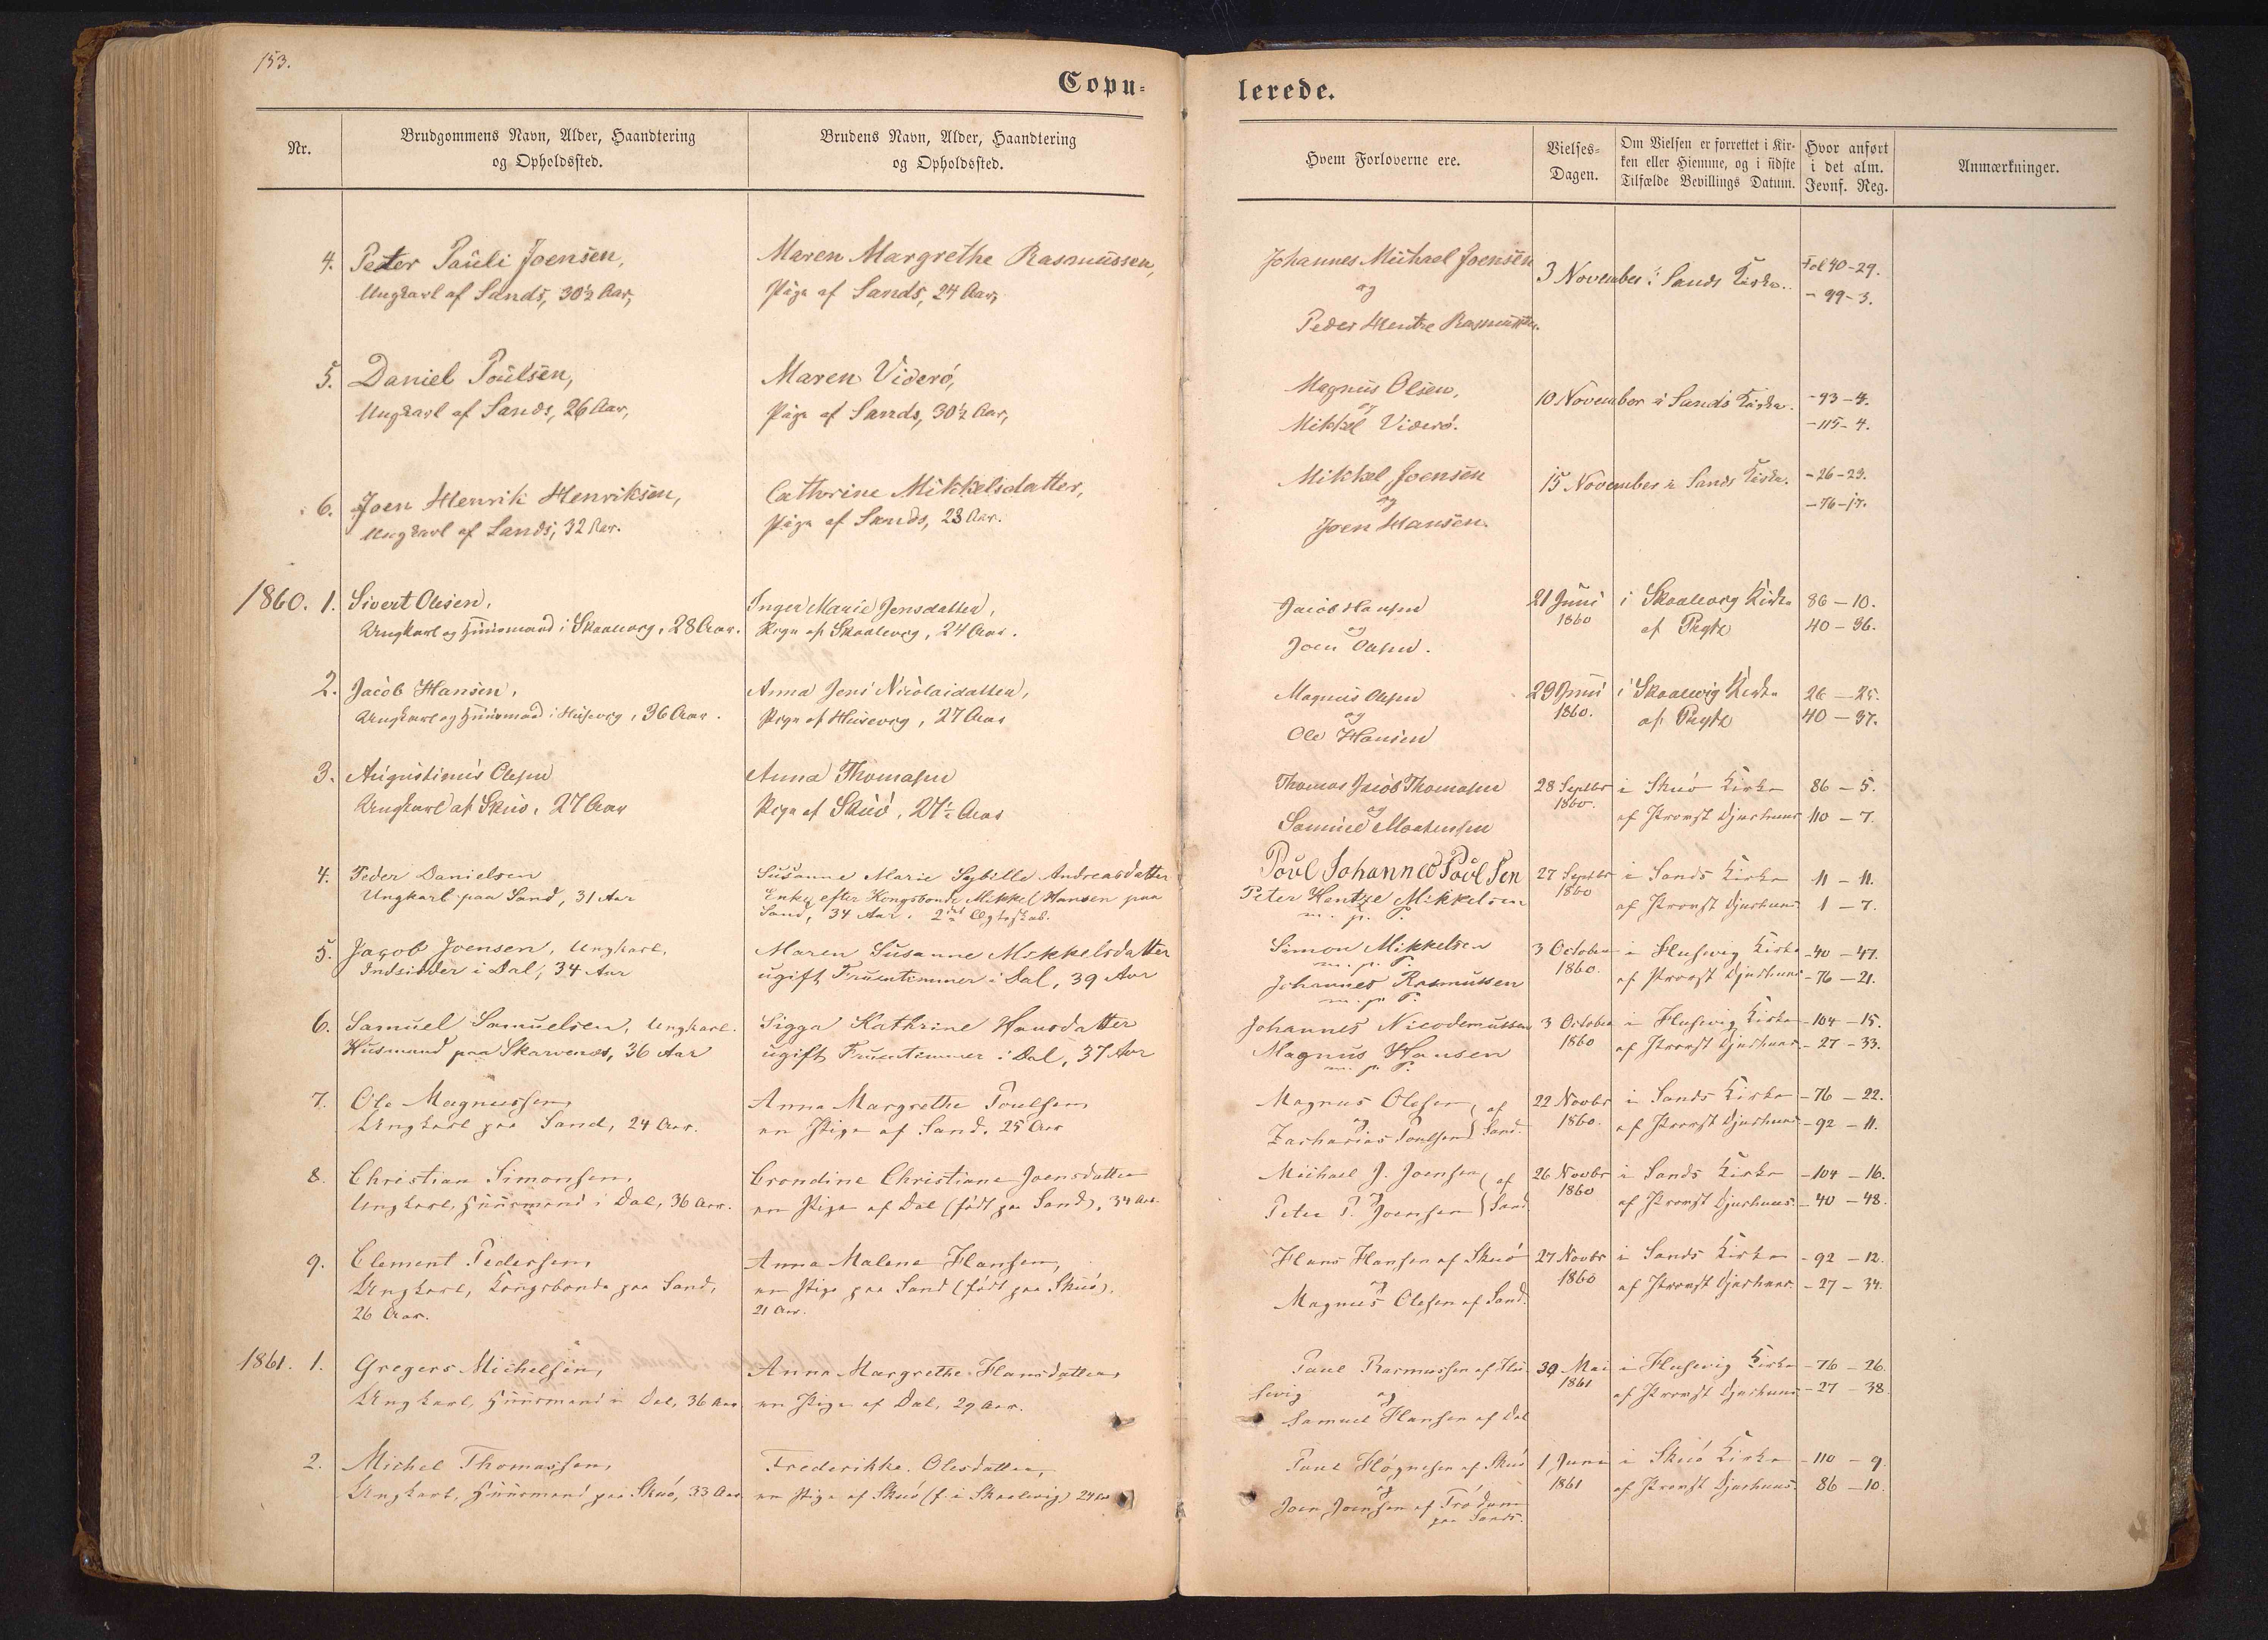 153.
Copu-
lerede.
Nr.
Brudgommens Navn, Alder, Haandtering
og Opholdssted.
Brudens Navn, Alder, Haandtering
og Opholdssted.
Hvem Forloverne ere.
Vielses-
Dagen.
Om Vielsen er forrettet i Kir-
ken eller Hiemme, og i sidste
Tilfælde Bevillings Datum.
Hvor anført
i det alm.
Jevnf. Reg.
Anmærkninger.
4. Peter Pauli Joensen,
Ungkarl af Sands, 30½ Aar,
Maren Margrethe Rasmussen,
Pige af Sands, 24 Aar,
Johannes Michael Joensen
og
Peder Hentze Rasmussen.
3 November i Sands Kirke.
Fol 40-29.
- 99-3.
5. Daniel Poulsen,
Ungkarl af Sands, 26 Aar,
Maren Viderö,
Pige af Sands, 30½ Aar,
Magnus Olsen,
og
Mikkel Viderö.
10 November i Sands Kirke.
-93-4.
-115-4.
6. Joen Henrik Henriksen,
Ungkarl af Sands, 32 Aar.
Cathrine Mikkelsdatter,
Pige af Sands, 23 Aar.
Mikkel Joensen
og
Joen Hansen.
15 November i Sands Kirke.
-26-23.
-76-17.
1860. 1. Sivert Olesen,
Ungkarl og Huusmand i Skaalevig, 28 Aar.
Inger Marie Jensdatter,
Pige af Skaalevig, 24 Aar.
Jacob Hansen
og
Joen Olesen.
21 Juni
1860
i Skaalevig Kirke
af
86-10.
40-36.
2. Jacob Hansen,
Ungkarl og Huusmand i Husevig, 36 Aar.
Anna Jens Nicolaidatter,
Pige af Husevig, 27 Aar
Magnus Olesen
og
Ole Hansen
29 Juni
1860.
i Skaalevig Kirke
af
26-25.
40-37.
3. Augustinus Olesen
Ungkarl af Skuö, 27 Aar
Anna Thomasen
Pige af Skuö, 27½ Aar
Thomas Jacob Thomasen
og
Samuel Mortensen
28 Septbr
1860.
i Skuö Kirke
af Provst Djurhuus
86-5.
110-7.
4. Peder Danielsen
Ungkarl paa Sand, 31 Aar
Susanne Marie Sybille Andreasdatter
Enke efter Kongsbonde Mikkel Hansen paa
Sand, 34 Aar. 2det Ægteskab.
Povl Johannes Povlsen
Peter Hentze Mikkelsen
m. p. P.
27 Septbr
1860
i Sands Kirke
af Provst Djurhuus
11-11.
1-7.
5. Jacob Joensen, Ungkarl,
Indsidder i Dal, 34 Aar
Maren Susanne Mikkelsdatter
ugift Fruentimmer i Dal, 39 Aar
Simon Mikkelsen
m. p. P.
Johannes Rasmussen
m. p. P.
3 October
1860.
i Husevig Kirke
af Provst Djurhuus
-40-47.
-76-21.
6. Samuel Samuelsen, Ungkarl.
Husmand paa Skarvenæs, 36 Aar
Sigga Kathrine Hansdatter
ugift Fruentimmer i Dal, 37 Aar
Johannes Nicodemussen
Magnus Hansen
m. p. P.
3 October
1860
i Husevig Kirke
af Provst Djurhuus
-104-15.
-27-33.
7. Ole Magnussen,
Ungkarl paa Sand, 24 Aar.
Anna Margrethe Poulsen,
en Pige af Sand. 25 Aar
Magnus Olesen, af
og
Zacharias Poulsen Sand.
22 Novbr
1860.
i Sands Kirke
af Provst Djurhuus
-76-22.
-92-11.
8. Christian Simonsen,
Ungkarl, Huusmand i Dal, 36 Aar.
Crondine Christiane Joensdatter
en Pige af Dal (født paa Sand), 34 Aar.
Michael J. Joensen, af
og
Peter P. Joensen Sand
26 Novbr
1860
i Sands Kirke
af Provst Djurhuus
-104-16.
-40-48.
9. Clement Pedersen,
Ungkarl, Kongsbonde paa Sand,
26 Aar.
Anna Malene Hansen,
en Pige paa Sand (født paa Skuö).
21 Aar.
Hans Hansen af Skuö
og
Magnus Olesen af Sand.
27 Novbr
1860
i Sands Kirke
af Provst Djurhuus.
-92-12.
-27-34.
1861. 1. Gregers Michelsen,
Ungkarl, Huusmand i Dal, 36 Aar
Anna Margrethe Hansdatter,
en Pige af Dal, 29 Aar.
Paul Rasmussen af Hu-
sevig og
Samuel Hansen af Dal
30 Mai
1861
i Husevig Kirke
af Provst Djurhuus
-76-26.
-27-38
2. Michel Thomassen,
Ungkarl, Huusmand paa Skuö, 33 Aar
Frederikke Olesdatter,
en Pige af Skuö (f. i Skaalevig) 24 Aar
Paul Høgnesen af Skuö
og
Joen Joensen af Trödum
paa Sands.
1 Juni
1861
i Skuö Kirke
af Provst Djurhuus.
-110-9.
86-10.